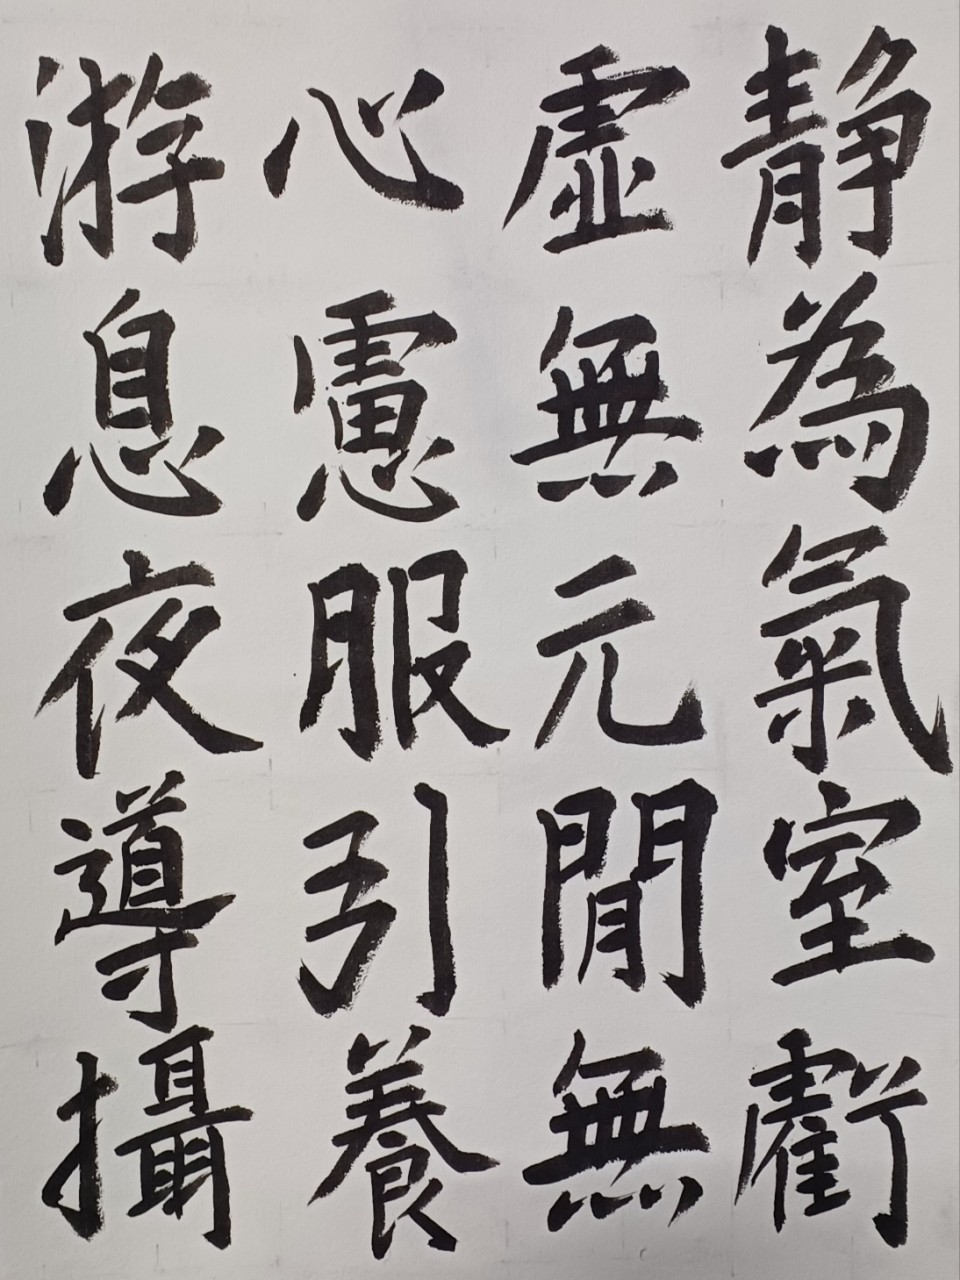 靜為氣室虧
虛無元閒無
心慮服引養
游息夜導攝